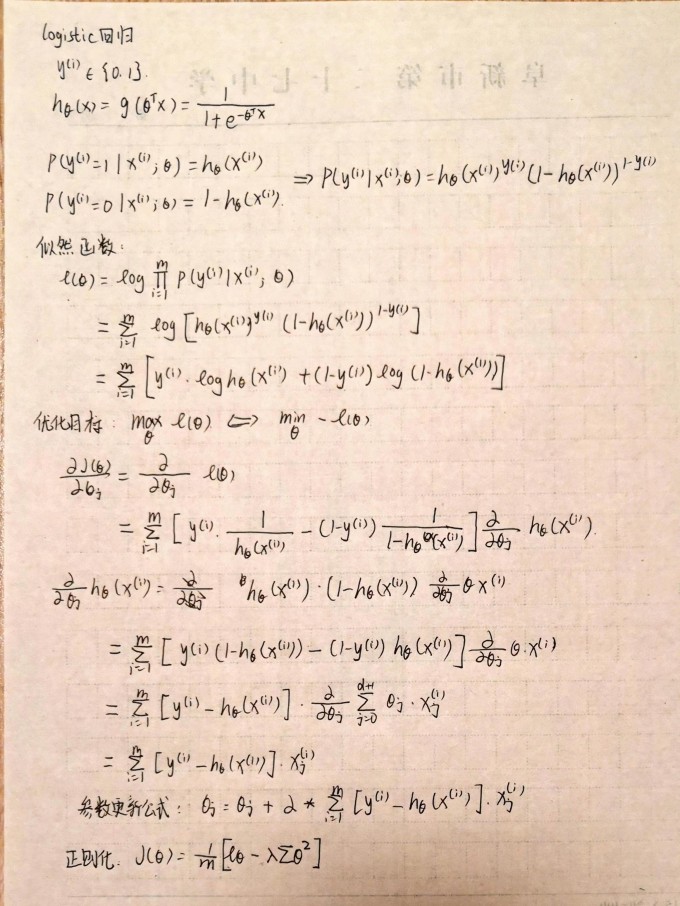 阜新市第二十七中学
logistic回归
y⁽ⁱ⁾ ∈ {0,1}.
h_θ(x) = g(θᵀx) = 1 / (1+e^(-θᵀx))
P(y⁽ⁱ⁾=1 | x⁽ⁱ⁾; θ) = h_θ(x⁽ⁱ⁾)
P(y⁽ⁱ⁾=0 | x⁽ⁱ⁾; θ) = 1-h_θ(x⁽ⁱ⁾).
⇒ P(y⁽ⁱ⁾|x⁽ⁱ⁾;θ) = h_θ(x⁽ⁱ⁾)^(y⁽ⁱ⁾) (1-h_θ(x⁽ⁱ⁾))^(1-y⁽ⁱ⁾)
似然函数:
ℓ(θ) = log ∏_{i=1}^{m} P(y⁽ⁱ⁾|x⁽ⁱ⁾; θ)
= ∑_{i=1}^{m} log[h_θ(x⁽ⁱ⁾)^(y⁽ⁱ⁾) (1-h_θ(x⁽ⁱ⁾))^(1-y⁽ⁱ⁾)]
= ∑_{i=1}^{m} [y⁽ⁱ⁾·log h_θ(x⁽ⁱ⁾) + (1-y⁽ⁱ⁾) log(1-h_θ(x⁽ⁱ⁾))]
优化目标: max_θ ℓ(θ) ⟺ min_θ -ℓ(θ)
∂J(θ)/∂θⱼ = ∂/∂θⱼ ℓ(θ)
= ∑_{i=1}^{m} [y⁽ⁱ⁾· 1/h_θ(x⁽ⁱ⁾) - (1-y⁽ⁱ⁾) 1/(1-h_θ(x⁽ⁱ⁾))] ∂/∂θⱼ h_θ(x⁽ⁱ⁾).
∂/∂θⱼ h_θ(x⁽ⁱ⁾) = h_θ(x⁽ⁱ⁾)·(1-h_θ(x⁽ⁱ⁾)) ∂/∂θⱼ θx⁽ⁱ⁾
= ∑_{i=1}^{m} [y⁽ⁱ⁾(1-h_θ(x⁽ⁱ⁾)) - (1-y⁽ⁱ⁾) h_θ(x⁽ⁱ⁾)] ∂/∂θⱼ θ·x⁽ⁱ⁾
= ∑_{i=1}^{m} [y⁽ⁱ⁾ - h_θ(x⁽ⁱ⁾)] · ∂/∂θⱼ ∑_{j=0}^{d+1} θⱼ·xⱼ⁽ⁱ⁾
= ∑_{i=1}^{m} [y⁽ⁱ⁾ - h_θ(x⁽ⁱ⁾)]·xⱼ⁽ⁱ⁾
参数更新公式: θⱼ = θⱼ + α * ∑_{i=1}^{m} [y⁽ⁱ⁾ - h_θ(x⁽ⁱ⁾)]·xⱼ⁽ⁱ⁾
正则化. J(θ) = 1/m [ℓθ - λ∑θ²]